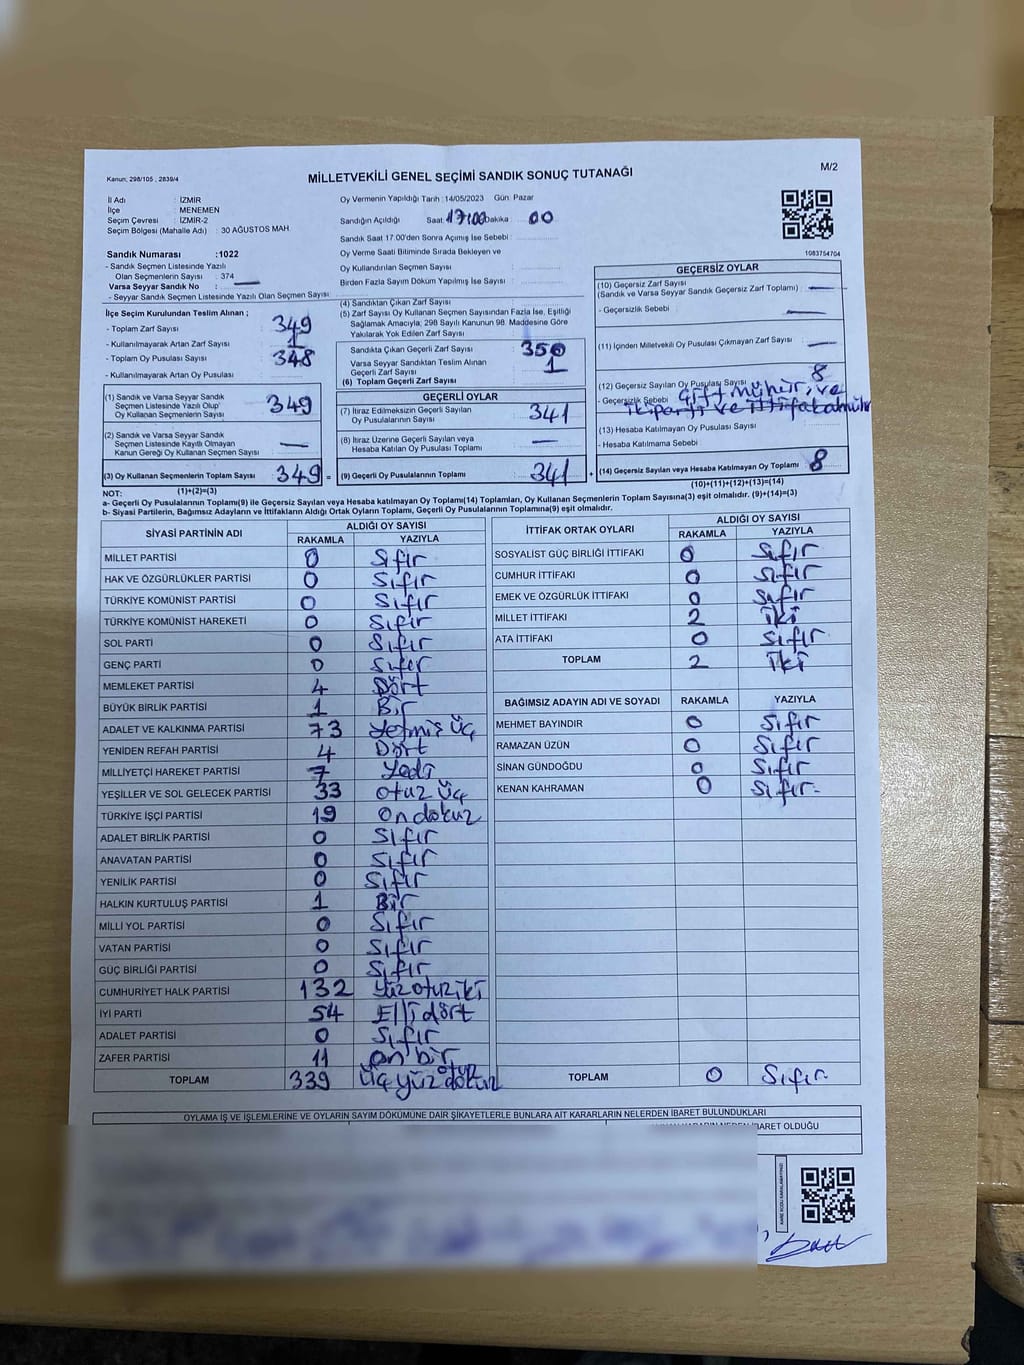 Kanun, 298/105 , 2839/4
MİLLETVEKİLİ GENEL SEÇİMİ SANDIK SONUÇ TUTANAĞI
M/2
İl Adı : İZMİR
İlçe : MENEMEN
Seçim Çevresi : İZMİR-2
Seçim Bölgesi (Mahalle Adı) : 30 AĞUSTOS MAH.
Sandık Numarası :1022
- Sandık Seçmen Listesinde Yazılı
Olan Seçmenlerin Sayısı : 374
Varsa Seyyar Sandık No :
- Seyyar Sandık Seçmen Listesinde Yazılı Olan Seçmen Sayısı:
Oy Vermenin Yapıldığı Tarih :14/05/2023 Gün: Pazar
Sandığın Açıldığı Saat: 17:00 Dakika : 00
Sandık Saat 17.00'den Sonra Açımış İse Sebebi :
Oy Verme Saati Bitiminde Sırada Bekleyen ve
Oy Kullandırılan Seçmen Sayısı :
Birden Fazla Sayım Döküm Yapılmış İse Sayısı :
1083754704
İlçe Seçim Kurulundan Teslim Alınan ;
- Toplam Zarf Sayısı : 349
- Kullanılmayarak Artan Zarf Sayısı : 1
- Toplam Oy Pusulası Sayısı : 348
- Kullanılmayarak Artan Oy Pusulası
(1) Sandık ve Varsa Seyyar Sandık
Seçmen Listesinde Yazılı Olup'
Oy Kullanan Seçmenlerin Sayısı : 349
(2) Sandık ve Varsa Seyyar Sandık
Seçmen Listesinde Kayıtlı Olmayan
Kanun Gereği Oy Kullanan Seçmen Sayısı : —
(3) Oy Kullanan Seçmenlerin Toplam Sayısı : 349 =
(1)+(2)=(3)
(4) Sandıktan Çıkan Zarf Sayısı :
(5) Zarf Sayısı Oy Kullanan Seçmen Sayısından Fazla İse, Eşitliği
Sağlamak Amacıyla; 298 Sayılı Kanunun 98. Maddesine Göre
Yakılarak Yok Edilen Zarf Sayısı :
Sandıkta Çıkan Geçerli Zarf Sayısı : 350
Varsa Seyyar Sandıktan Teslim Alınan
Geçerli Zarf Sayısı : 1
(6) Toplam Geçerli Zarf Sayısı :
GEÇERLİ OYLAR
(7) İtiraz Edilmeksizin Geçerli Sayılan
Oy Pusulasının Sayısı : 341
(8) İtiraz Üzerine Geçerli Sayılan veya
Hesaba Katılan Oy Pusulası Toplamı : —
(9) Geçerli Oy Pusulalarının Toplamı : 341 +
GEÇERSİZ OYLAR
(10) Geçersiz Zarf Sayısı
(Sandık ve Varsa Seyyar Sandık Geçersiz Zarf Toplamı) : —
- Geçersizlik Sebebi : —
(11) İçinden Milletvekili Oy Pusulası Çıkmayan Zarf Sayısı : —
(12) Geçersiz Sayılan Oy Pusulası Sayısı : 8
- Geçersizlik Sebebi : Çift mühür, ve
iki parti ve ittifaka mühür
(13) Hesaba Katılmayan Oy Pusulası Sayısı :
- Hesaba Katılmama Sebebi :
(14) Geçersiz Sayılan veya Hesaba Katılmayan Oy Toplamı : 8
(10)+(11)+(12)+(13)=(14)
NOT:
a- Geçerli Oy Pusulalarının Toplamı(9) ile Geçersiz Sayılan veya Hesaba katılmayan Oy Toplamı(14) Toplamları, Oy Kullanan Seçmenlerin Toplam Sayısına(3) eşit olmalıdır. (9)+(14)=(3)
b- Siyasi Partilerin, Bağımsız Adayların ve İttifakların Aldığı Ortak Oyların Toplamı, Geçerli Oy Pusulalarının Toplamına(9) eşit olmalıdır.
SİYASİ PARTİNİN ADI ALDIĞI OY SAYISI
RAKAMLA YAZIYLA
MİLLET PARTİSİ 0 Sıfır
HAK VE ÖZGÜRLÜKLER PARTİSİ 0 Sıfır
TÜRKİYE KOMÜNİST PARTİSİ 0 Sıfır
TÜRKİYE KOMÜNİST HAREKETİ 0 Sıfır
SOL PARTİ 0 Sıfır
GENÇ PARTİ 0 Sıfır
MEMLEKET PARTİSİ 4 Dört
BÜYÜK BİRLİK PARTİSİ 1 Bir
ADALET VE KALKINMA PARTİSİ 73 Yetmiş üç
YENİDEN REFAH PARTİSİ 4 Dört
MİLLİYETÇİ HAREKET PARTİSİ 7 Yedi
YEŞİLLER VE SOL GELECEK PARTİSİ 33 otuz üç
TÜRKİYE İŞÇİ PARTİSİ 19 on dokuz
ADALET BİRLİK PARTİSİ 0 Sıfır
ANAVATAN PARTİSİ 0 Sıfır
YENİLİK PARTİSİ 0 Sıfır
HALKIN KURTULUŞ PARTİSİ 1 Bir
MİLLİ YOL PARTİSİ 0 Sıfır
VATAN PARTİSİ 0 Sıfır
GÜÇ BİRLİĞİ PARTİSİ 0 Sıfır
CUMHURİYET HALK PARTİSİ 132 Yüz otuz iki
İYİ PARTİ 54 Elli dört
ADALET PARTİSİ 0 Sıfır
ZAFER PARTİSİ 11 on bir
TOPLAM 339 Üç yüz otuz dokuz
İTTİFAK ORTAK OYLARI ALDIĞI OY SAYISI
RAKAMLA YAZIYLA
SOSYALİST GÜÇ BİRLİĞİ İTTİFAKI 0 Sıfır
CUMHUR İTTİFAKI 0 Sıfır
EMEK VE ÖZGÜRLÜK İTTİFAKI 0 Sıfır
MİLLET İTTİFAKI 2 iki
ATA İTTİFAKI 0 Sıfır
TOPLAM 2 iki
BAĞIMSIZ ADAYIN ADI VE SOYADI RAKAMLA YAZIYLA
MEHMET BAYINDIR 0 Sıfır
RAMAZAN ÜZÜN 0 Sıfır
SİNAN GÜNDOĞDU 0 Sıfır
KENAN KAHRAMAN 0 Sıfır-
TOPLAM 0 Sıfır
OYLAMA İŞ VE İŞLEMLERİNE VE OYLARIN SAYIM DÖKÜMÜNE DAİR ŞİKAYETLERLE BUNLARA AİT KARARLARIN NELERDEN İBARET BULUNDUKLARI
İBARET OLDUĞU